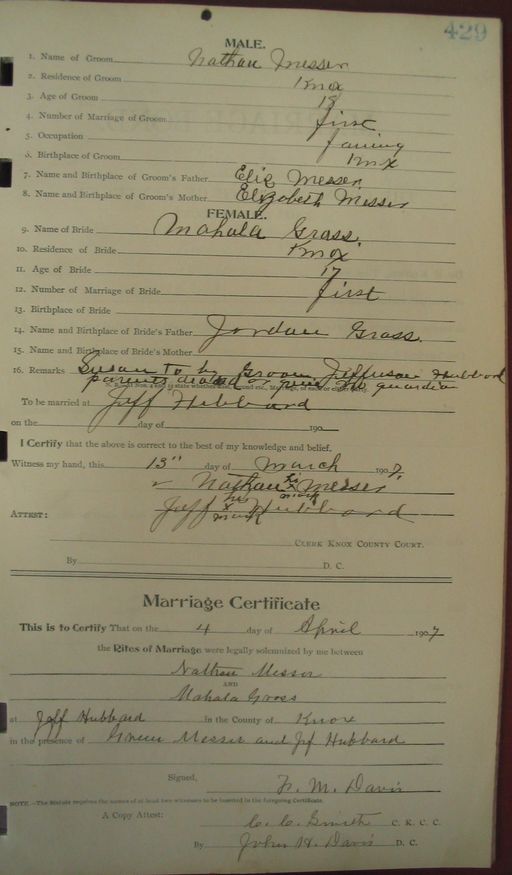 429
MALE.
1. Name of Groom Nathan Messer
2. Residence of Groom Knox
3. Age of Groom 18
4. Number of Marriage of Groom first
5. Occupation faming
6. Birthplace of Groom Knox
7. Name and Birthplace of Groom's Father Elic Messer
8. Name and Birthplace of Groom's Mother Elizabeth Messer
FEMALE.
9. Name of Bride Mahala Grass.
10. Residence of Bride Knox
11. Age of Bride 17
12. Number of Marriage of Bride first
13. Birthplace of Bride
14. Name and Birthplace of Bride's Father Jordan Grass.
15. Name and Birthplace of Bride's Mother
16. Remarks to by Groom Jefferson Hubbard
parents guardian
To be married at Jeff Hubbard
on the day of 190
I Certify that the above is correct to the best of my knowledge and belief.
Witness my hand, this 13" day of March 1907,
Nathan his x mark Messer
Jeff his x mark Hubbard
ATTEST:
CLERK KNOX COUNTY COURT.
By D. C.
Marriage Certificate
This is to Certify That on the 4 day of April 1907
the Rites of Marriage were legally solemnized by me between
Nathan Messer
AND
Mahala Gross
at Jeff Hubbard in the County of Knox
in the presence of Messer and Jef Hubbard
Signed, M. Davis
NOTE.—The Statute requires the names of at least two witnesses to be inserted in the foregoing Certificate.
A Copy Attest: C. C. Smith C. K. C. C.
By John H. Davis D. C.